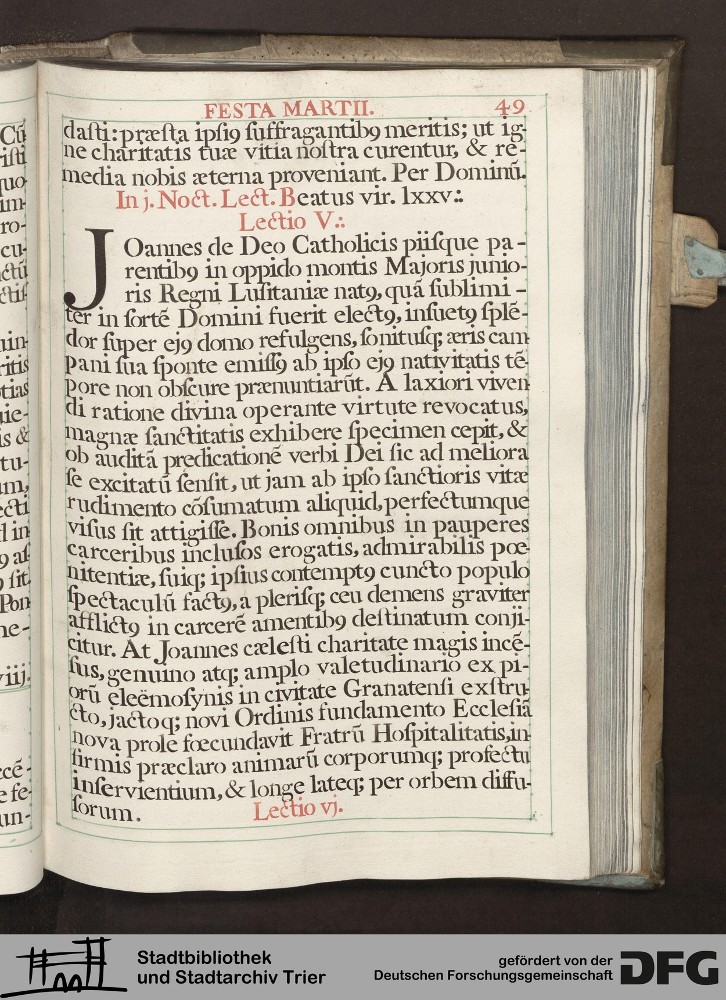 FESTA MARTII. 49
daſti: præſta ipſiꝯ ſuffragantibꝯ meritis; ut ig-
ne charitatis tuæ vitia noſtra curentur, & re-
media nobis æterna proveniant. Per Dominũ.
In j. Noct. Lect. Beatus vir. lxxv:.
Lectio V:.
JOannes de Deo Catholicis piiſque pa-
rentibꝯ in oppido montis Majoris junio-
ris Regni Luſitaniæ natꝯ, quã ſublimi-
ter in ſortẽ Domini fuerit electꝯ, inſuetꝯ ſplẽ-
dor ſuper ejꝯ domo refulgens, ſonituſq; æris cam
pani ſua ſponte emiſſꝯ ab ipſo ejꝯ nativitatis tẽ-
pore non obſcure prænuntiarũt. A laxiori viven
di ratione divina operante virtute revocatus,
magnæ ſanctitatis exhibere ſpecimen cepit, &
ob auditã predicationẽ verbi Dei ſic ad meliora
ſe excitatũ ſenſit, ut jam ab ipſo ſanctioris vitæ
rudimento cõſumatum aliquid, perfectumque
viſus ſit attigiſſe. Bonis omnibus in pauperes
carceribus incluſos erogatis, admirabilis pœ-
nitentiæ, ſuiq; ipſius contemptꝯ cuncto populo
ſpectaculũ factꝯ, a pleriſq; ceu demens graviter
afflictꝯ in carcerẽ amentibꝯ deſtinatum conji-
citur. At Joannes cæleſti charitate magis incẽ-
ſus, genuino atq; amplo valetudinario ex pi-
orũ eleëmoſynis in civitate Granatenſi exſtru-
cto, jactoq; novi Ordinis fundamento Eccleſiã
nova prole fœcundavit Fratrũ Hoſpitalitatis, in-
firmis præclaro animarũ corporumq; profectu
inſervientium, & longe lateq; per orbem diffu-
ſorum. Lectio vj.
Cũ
iſti
quo
im-
ro-
cu-
ctũ
ctiſ
uin-
ritis
tias
uie-
is &
tu-
um,
ecti
d in
ꝯ aſ
ꝯ ſit
Pon
ne-
viij.
ccẽ-
e fe-
un-
Stadtbibliothek
und Stadtarchiv Trier
gefördert von der
Deutschen Forschungsgemeinschaft
DFG